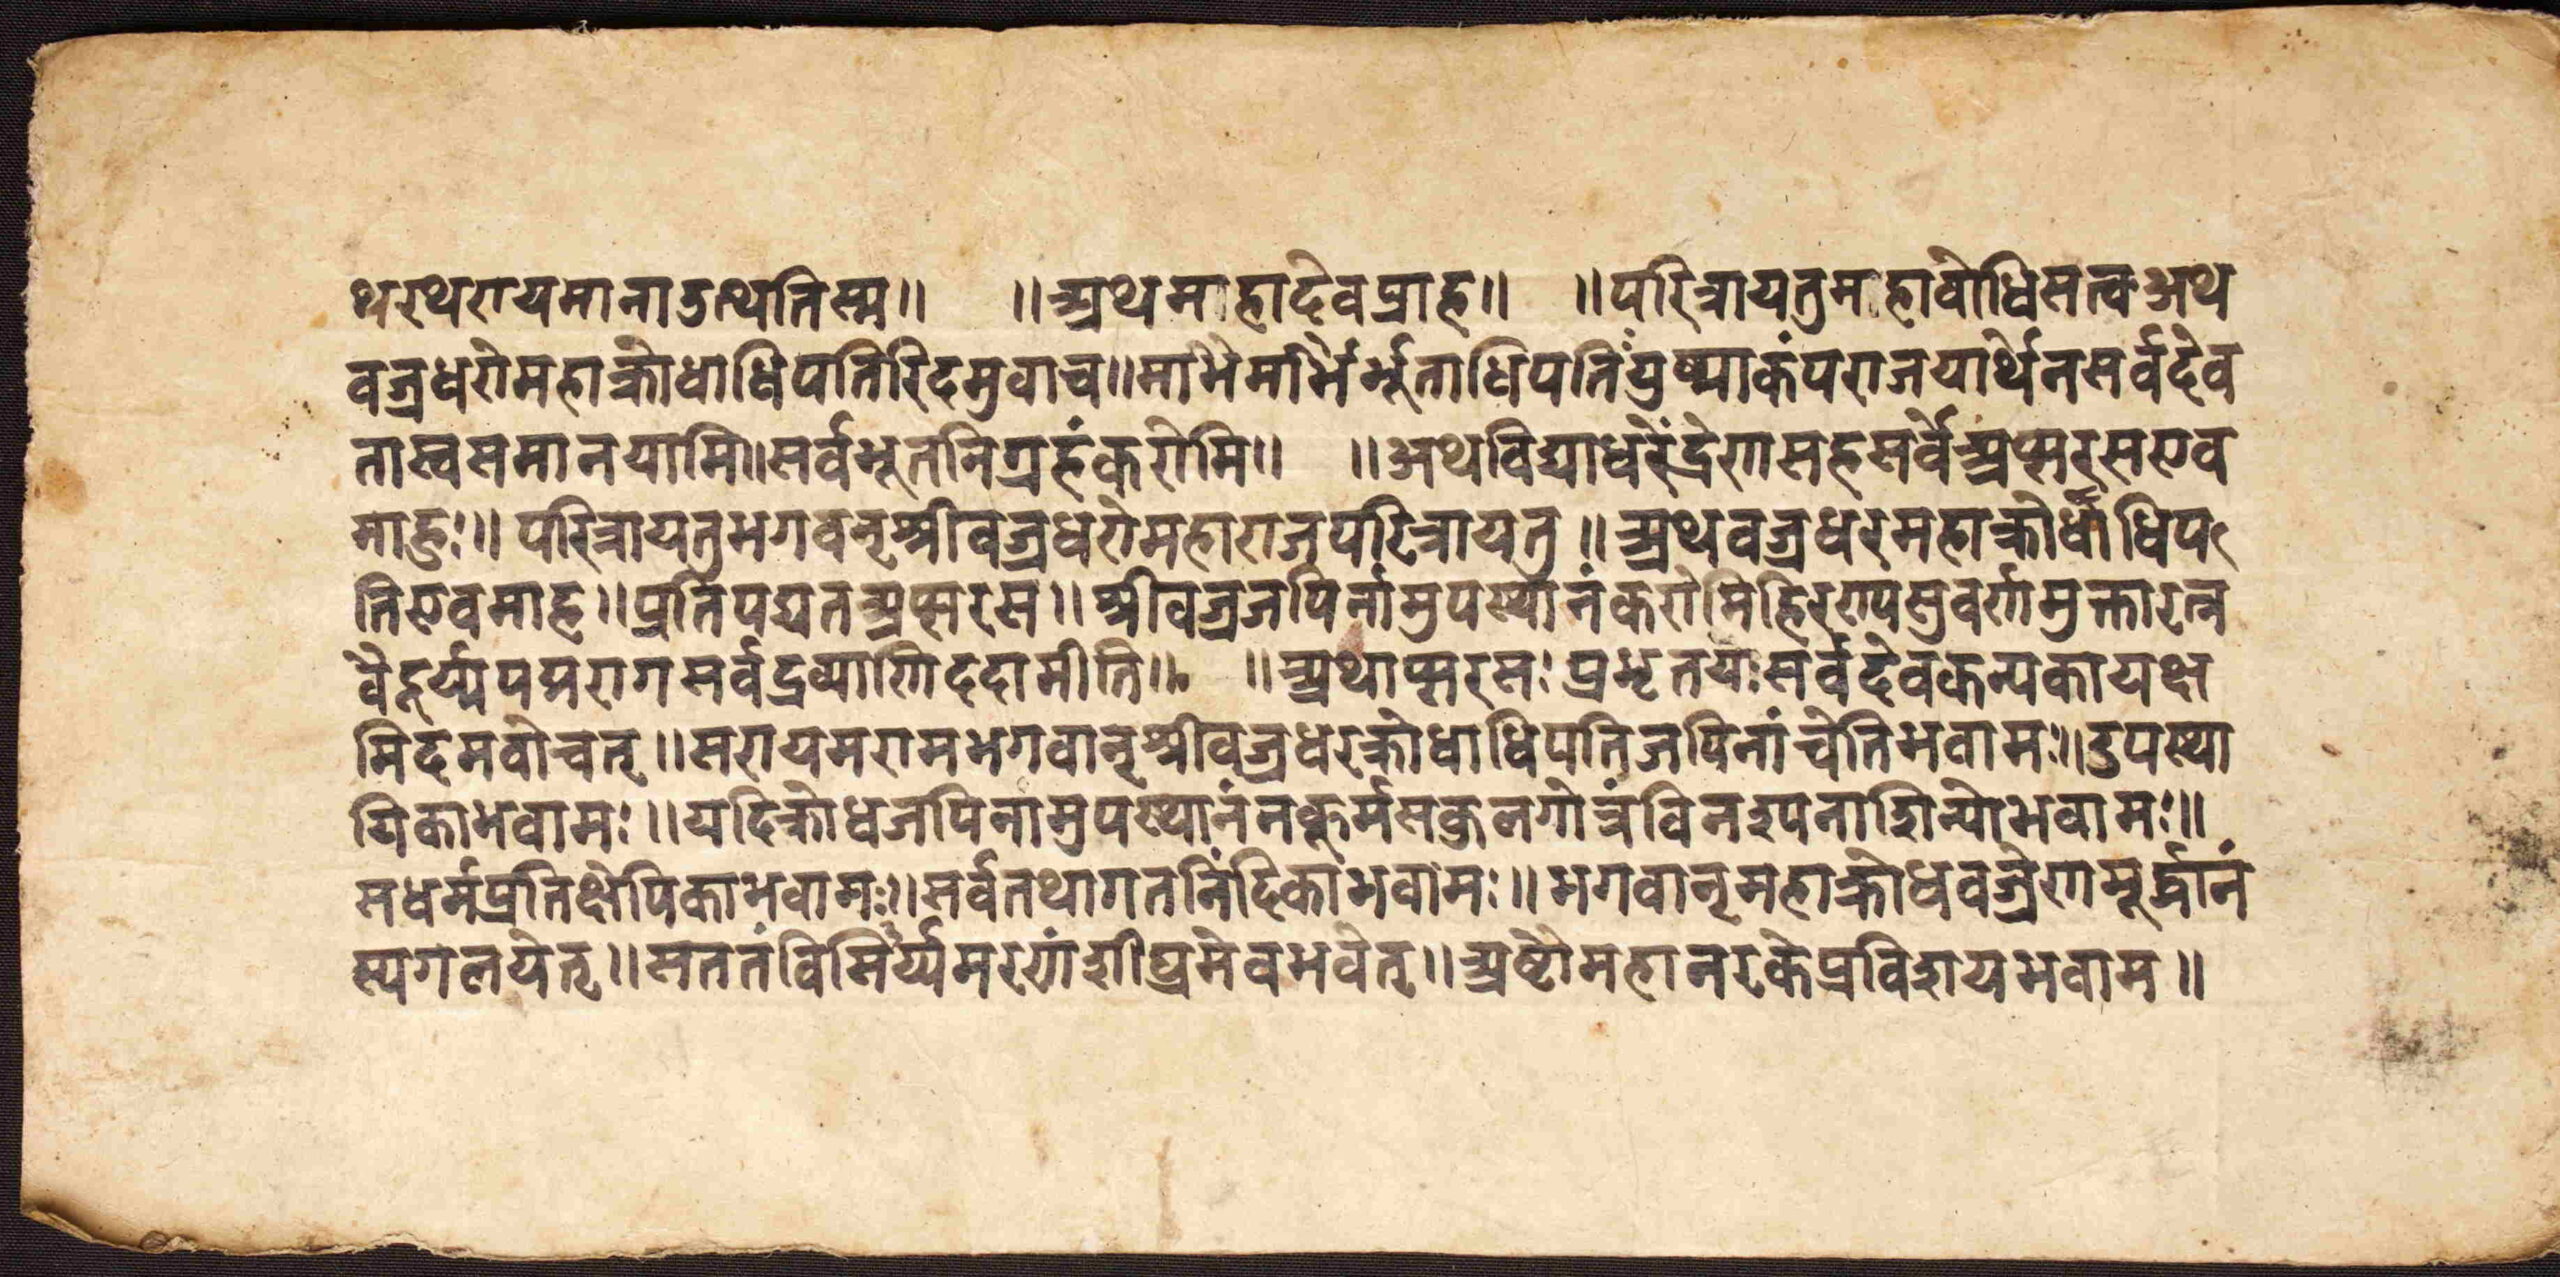 थरथरायमानाउत्थतिस्म॥ ॥अथमाहादेवप्राह॥ ॥परित्रायतुमहावोधिसत्वअथ
वज्रधरोमहाक्रोधाधिपतिरिदमुवाच॥माभैमाभैर्भूताधिपतिंयुष्माकंपराजयार्थेनसर्वदेव
तास्वसमानयामि॥सर्वभूतनिग्रहंकरोमि॥ ॥अथविद्याधरेंद्रेणसहसर्वेअप्सरसएव
माहुः॥परित्रायतुभगवन्श्रीवज्रधरोमहाराजपरित्रायतु॥अथवज्रधरमहाक्रोधाधिप
तिएवमाह॥प्रतिपद्यतअप्सरस॥श्रीवज्रजपिर्नामुपस्थानंकरोमिहिरण्यसुवर्णमुक्तारत्न
वैदूर्य्यपद्मरागसर्वद्रव्याणिददामीति॥ ॥अथाप्सरसःप्रभृतयःसर्वदेवकन्यकायक्ष
मिदमवोचत्॥सरायमरामभगवान्श्रीवज्रधरक्रोधाधिपतिजपिनांचेतिभवामः॥उपस्था
यिकाभवामः॥यदिक्रोधजपिनामुपस्थानंनकूर्मसकुलगोत्रंविनश्पनाशिन्योभवामः॥
सधर्मप्रतिक्षेपिकाभवामः॥सर्वतथागतनिंदिकाभवामः॥भगवान्महाक्रोधवज्रेणमूर्द्धानं
स्यगलयेत्॥सततंविसिर्य्यमरणंशीघ्रमेवभवेत्॥अष्टौमहानरकेप्रविशयभवाम॥